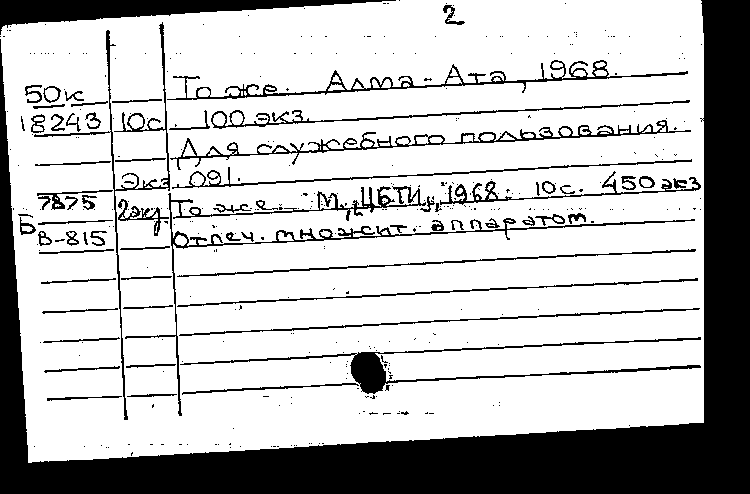 2
50к То же. Алма-Ата, 1968.
18243 10с. 100 экз.
Для служебного пользования.
Экз. 091.
7875 2экз То же. М., ЦБТИ, 1968. 10с. 450 экз
Б В-815 Отпеч. множит. аппаратом.